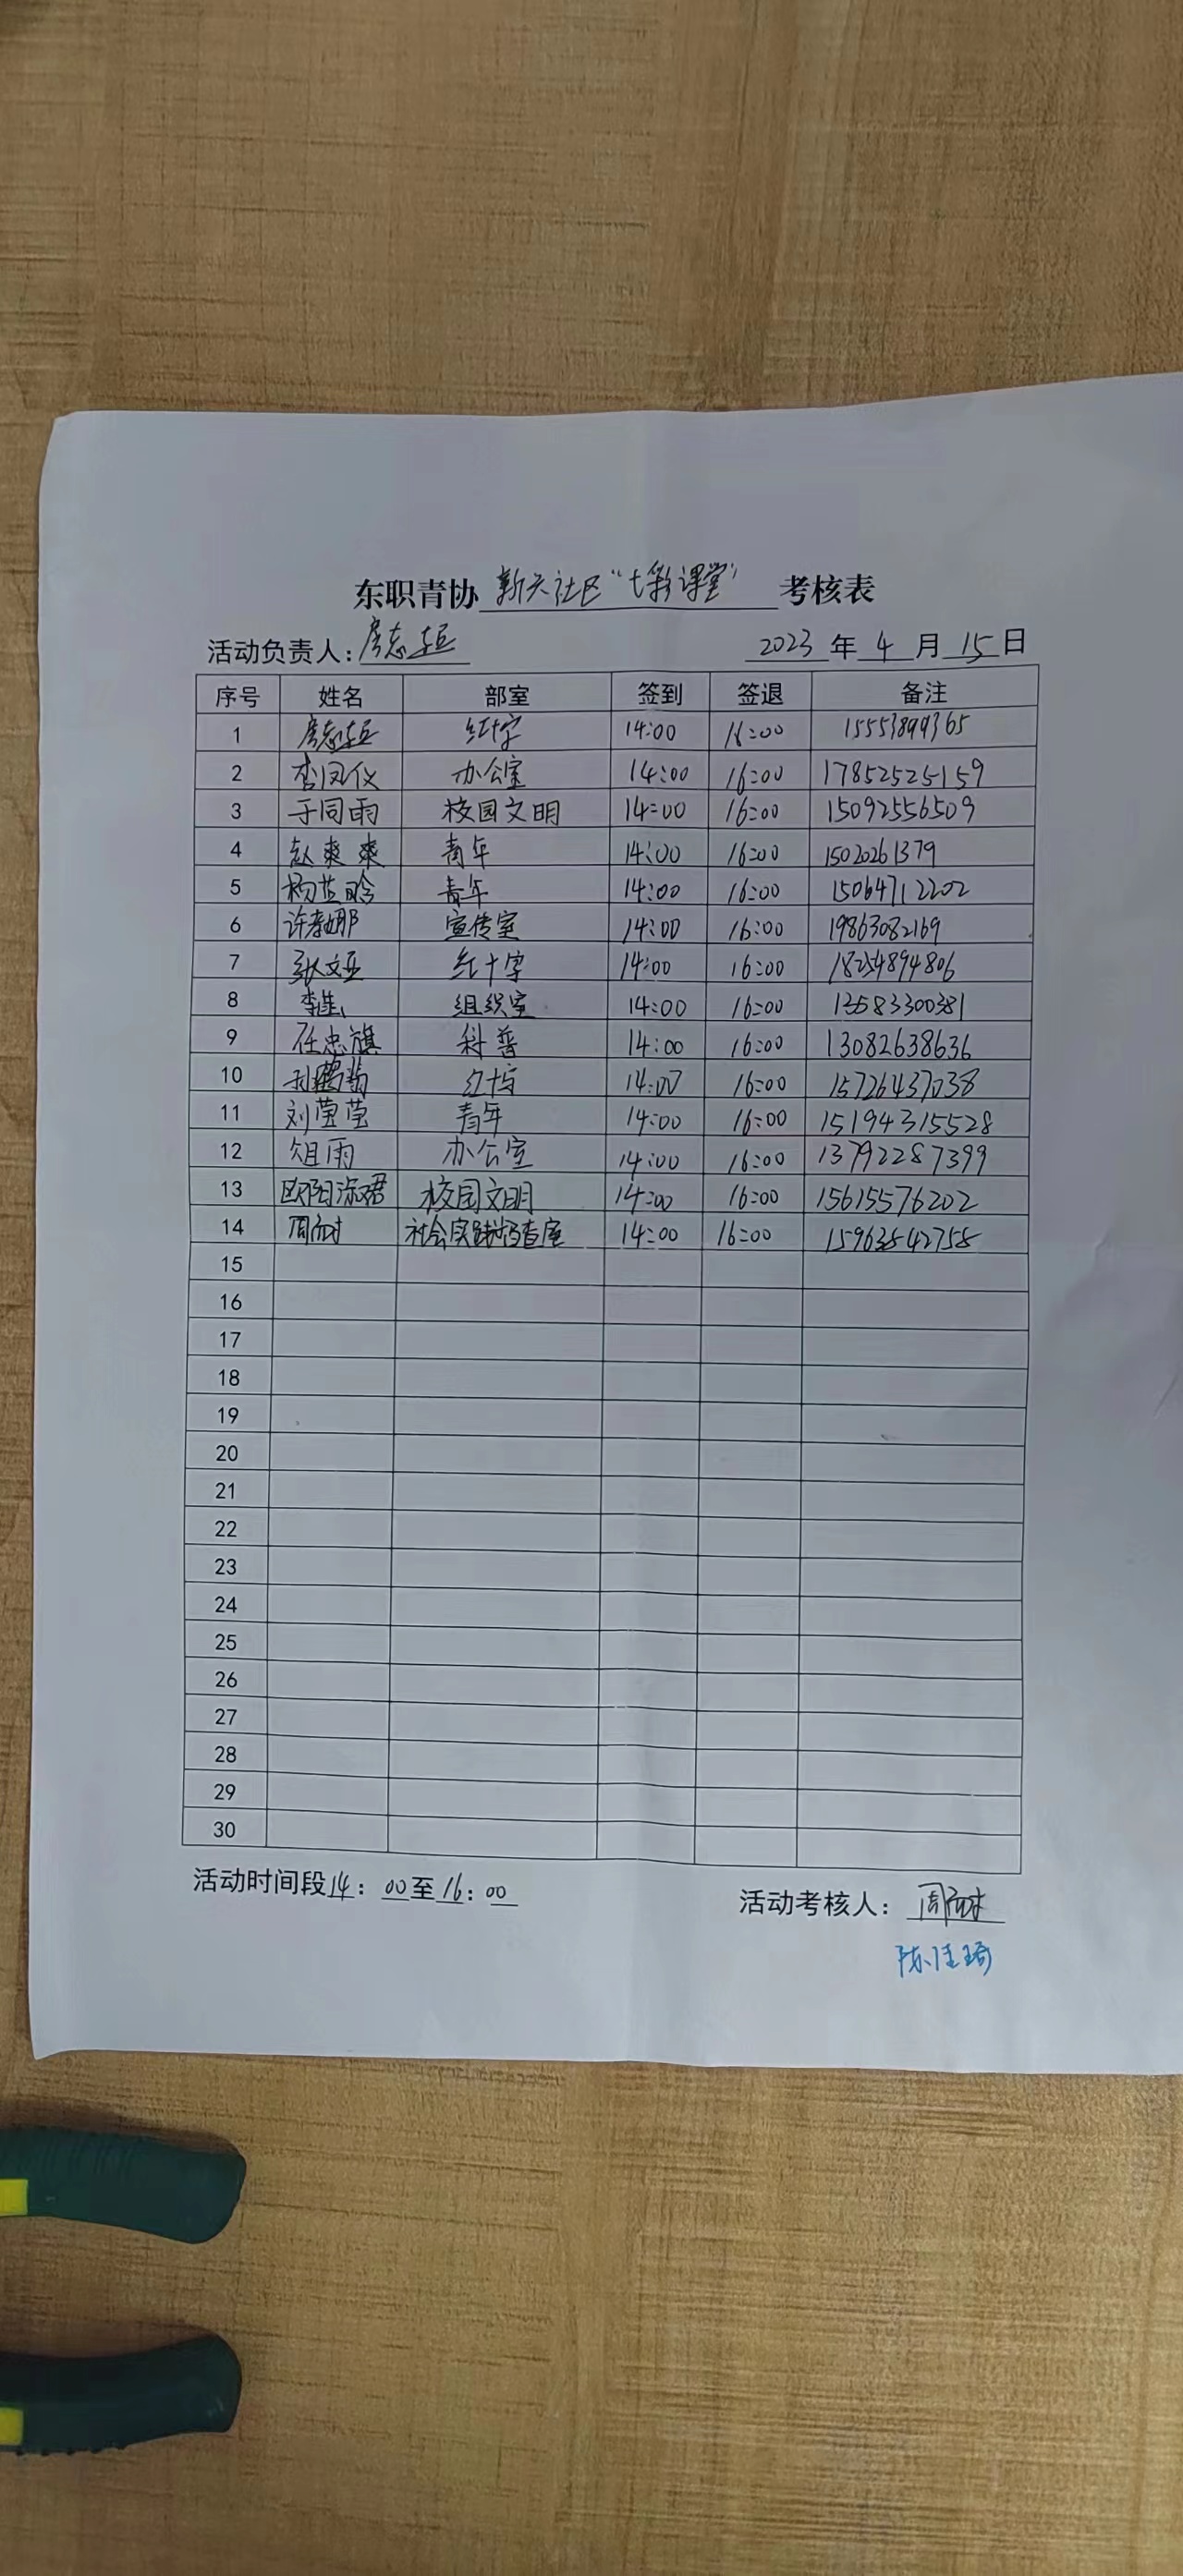 东职青协 新兴社区“七彩课堂” 考核表
活动负责人: 房志垣 2023 年 4 月 15 日
序号 姓名 部室 签到 签退 备注
1 红十字 14:00 16:00 15553899365
2 李凤仪 办公室 14:00 16:00 17852525159
3 于同雨 校园文明 14:00 16:00 15092556509
4 赵爽爽 青年 14:00 16:00 15020261379
5 杨芸晗 青年 14:00 16:00 15064712202
6 宣传室 14:00 16:00 19863082169
7 张文亚 红十字 14:00 16:00 18254894806
8 组织室 14:00 16:00 13583300381
9 任忠旗 科普 14:00 16:00 13082638636
10 红十字 14:00 16:00 15726437038
11 刘莹莹 青年 14:00 16:00 15194315528
12 俎雨 办公室 14:00 16:00 13792287399
13 校园文明 14:00 16:00 15615576202
14 社会实践调查室 14:00 16:00
15
16
17
18
19
20
21
22
23
24
25
26
27
28
29
30
活动时间段 14: 00 至 16: 00
活动考核人:
陈佳琦